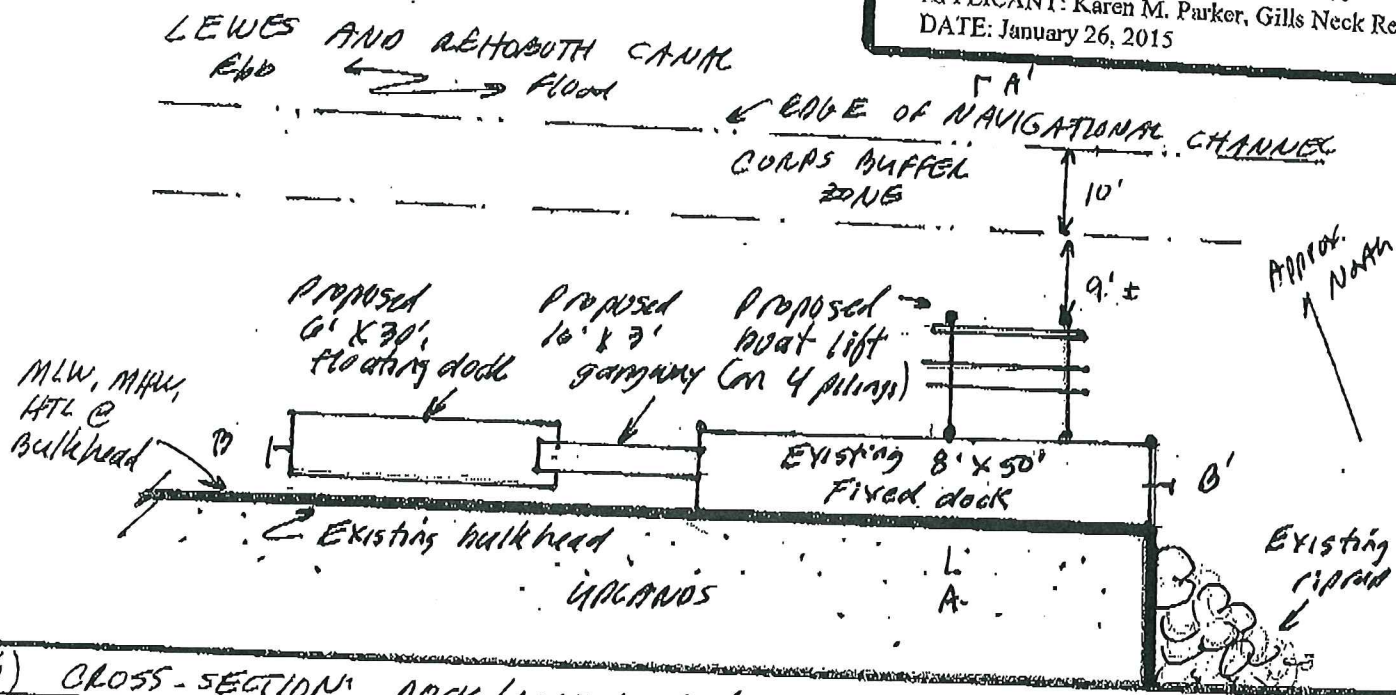 APPLICANT: Karen M. Parker, Gills Neck Re
DATE: January 26, 2015
LEWES AND REHOBOTH CANAL
Ebb
Flood
A'
EDGE OF NAVIGATIONAL CHANNEL
CORPS BUFFER
ZONE
10'
APPROX.
North
9' ±
Proposed
6' X 30'
floating dock
Proposed
16' X 3'
gangway
Proposed
boat lift
(on 4 pilings)
MLW, MHW,
HTL @
Bulkhead
B
Existing 8' X 50'
Fixed dock
B'
Existing bulkhead
UPLANDS
A
Existing
riprap
CROSS-SECTION: